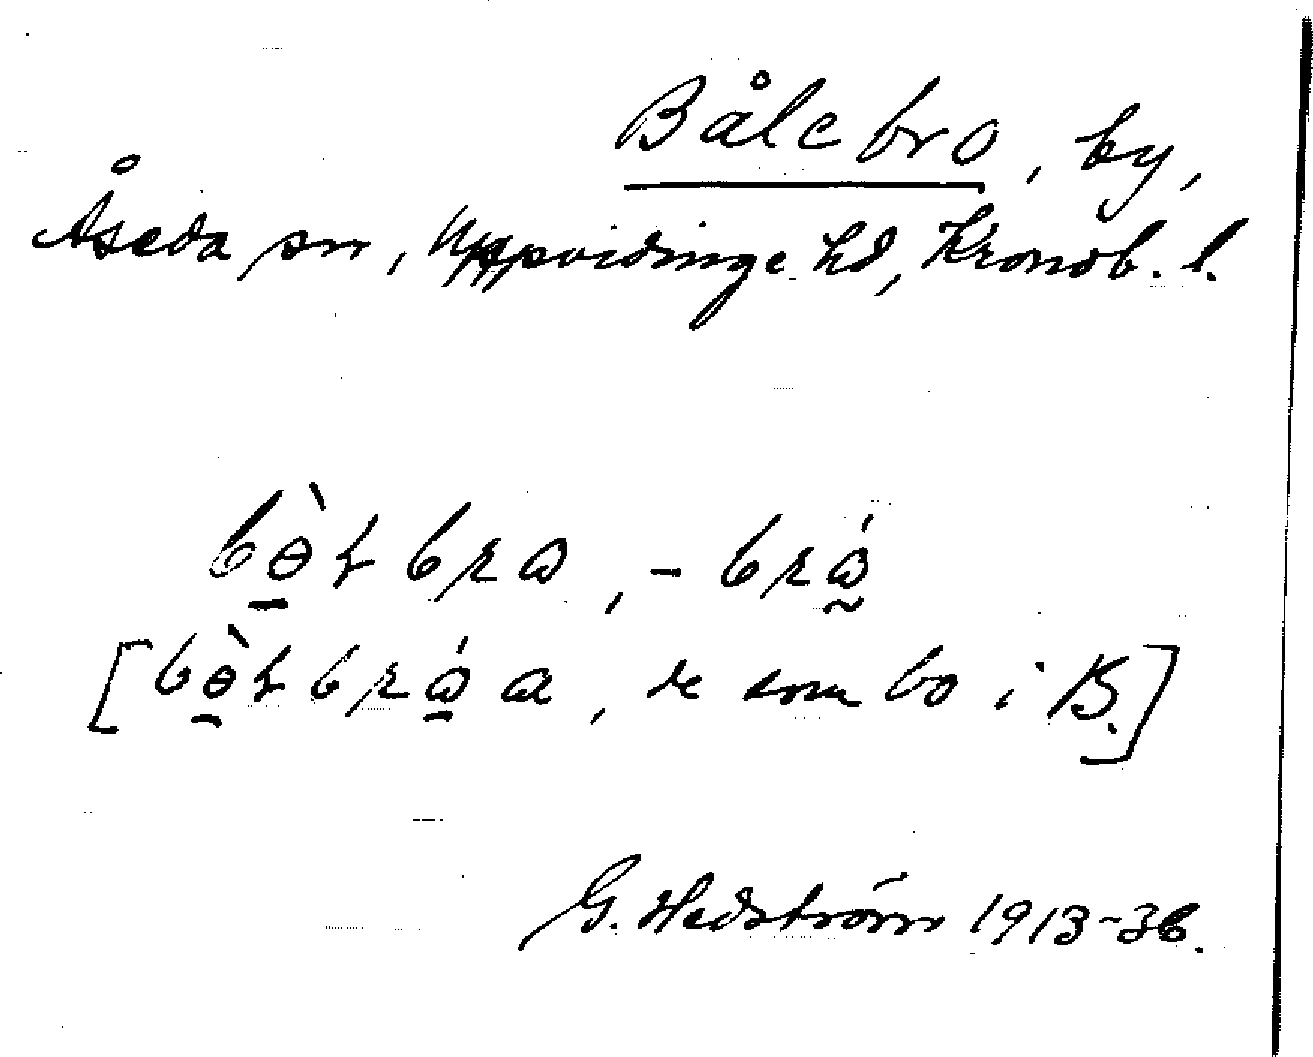 Bålebro, by,
Åseda sn, Uppvidinge hd, Kronob. l.
bɵ̠̀ɫbrɷ, -brɷ̰́
[bɵ̠̀ɫbrɷ̠́a, de som bo i B.]
G. Hedström 1913-36.